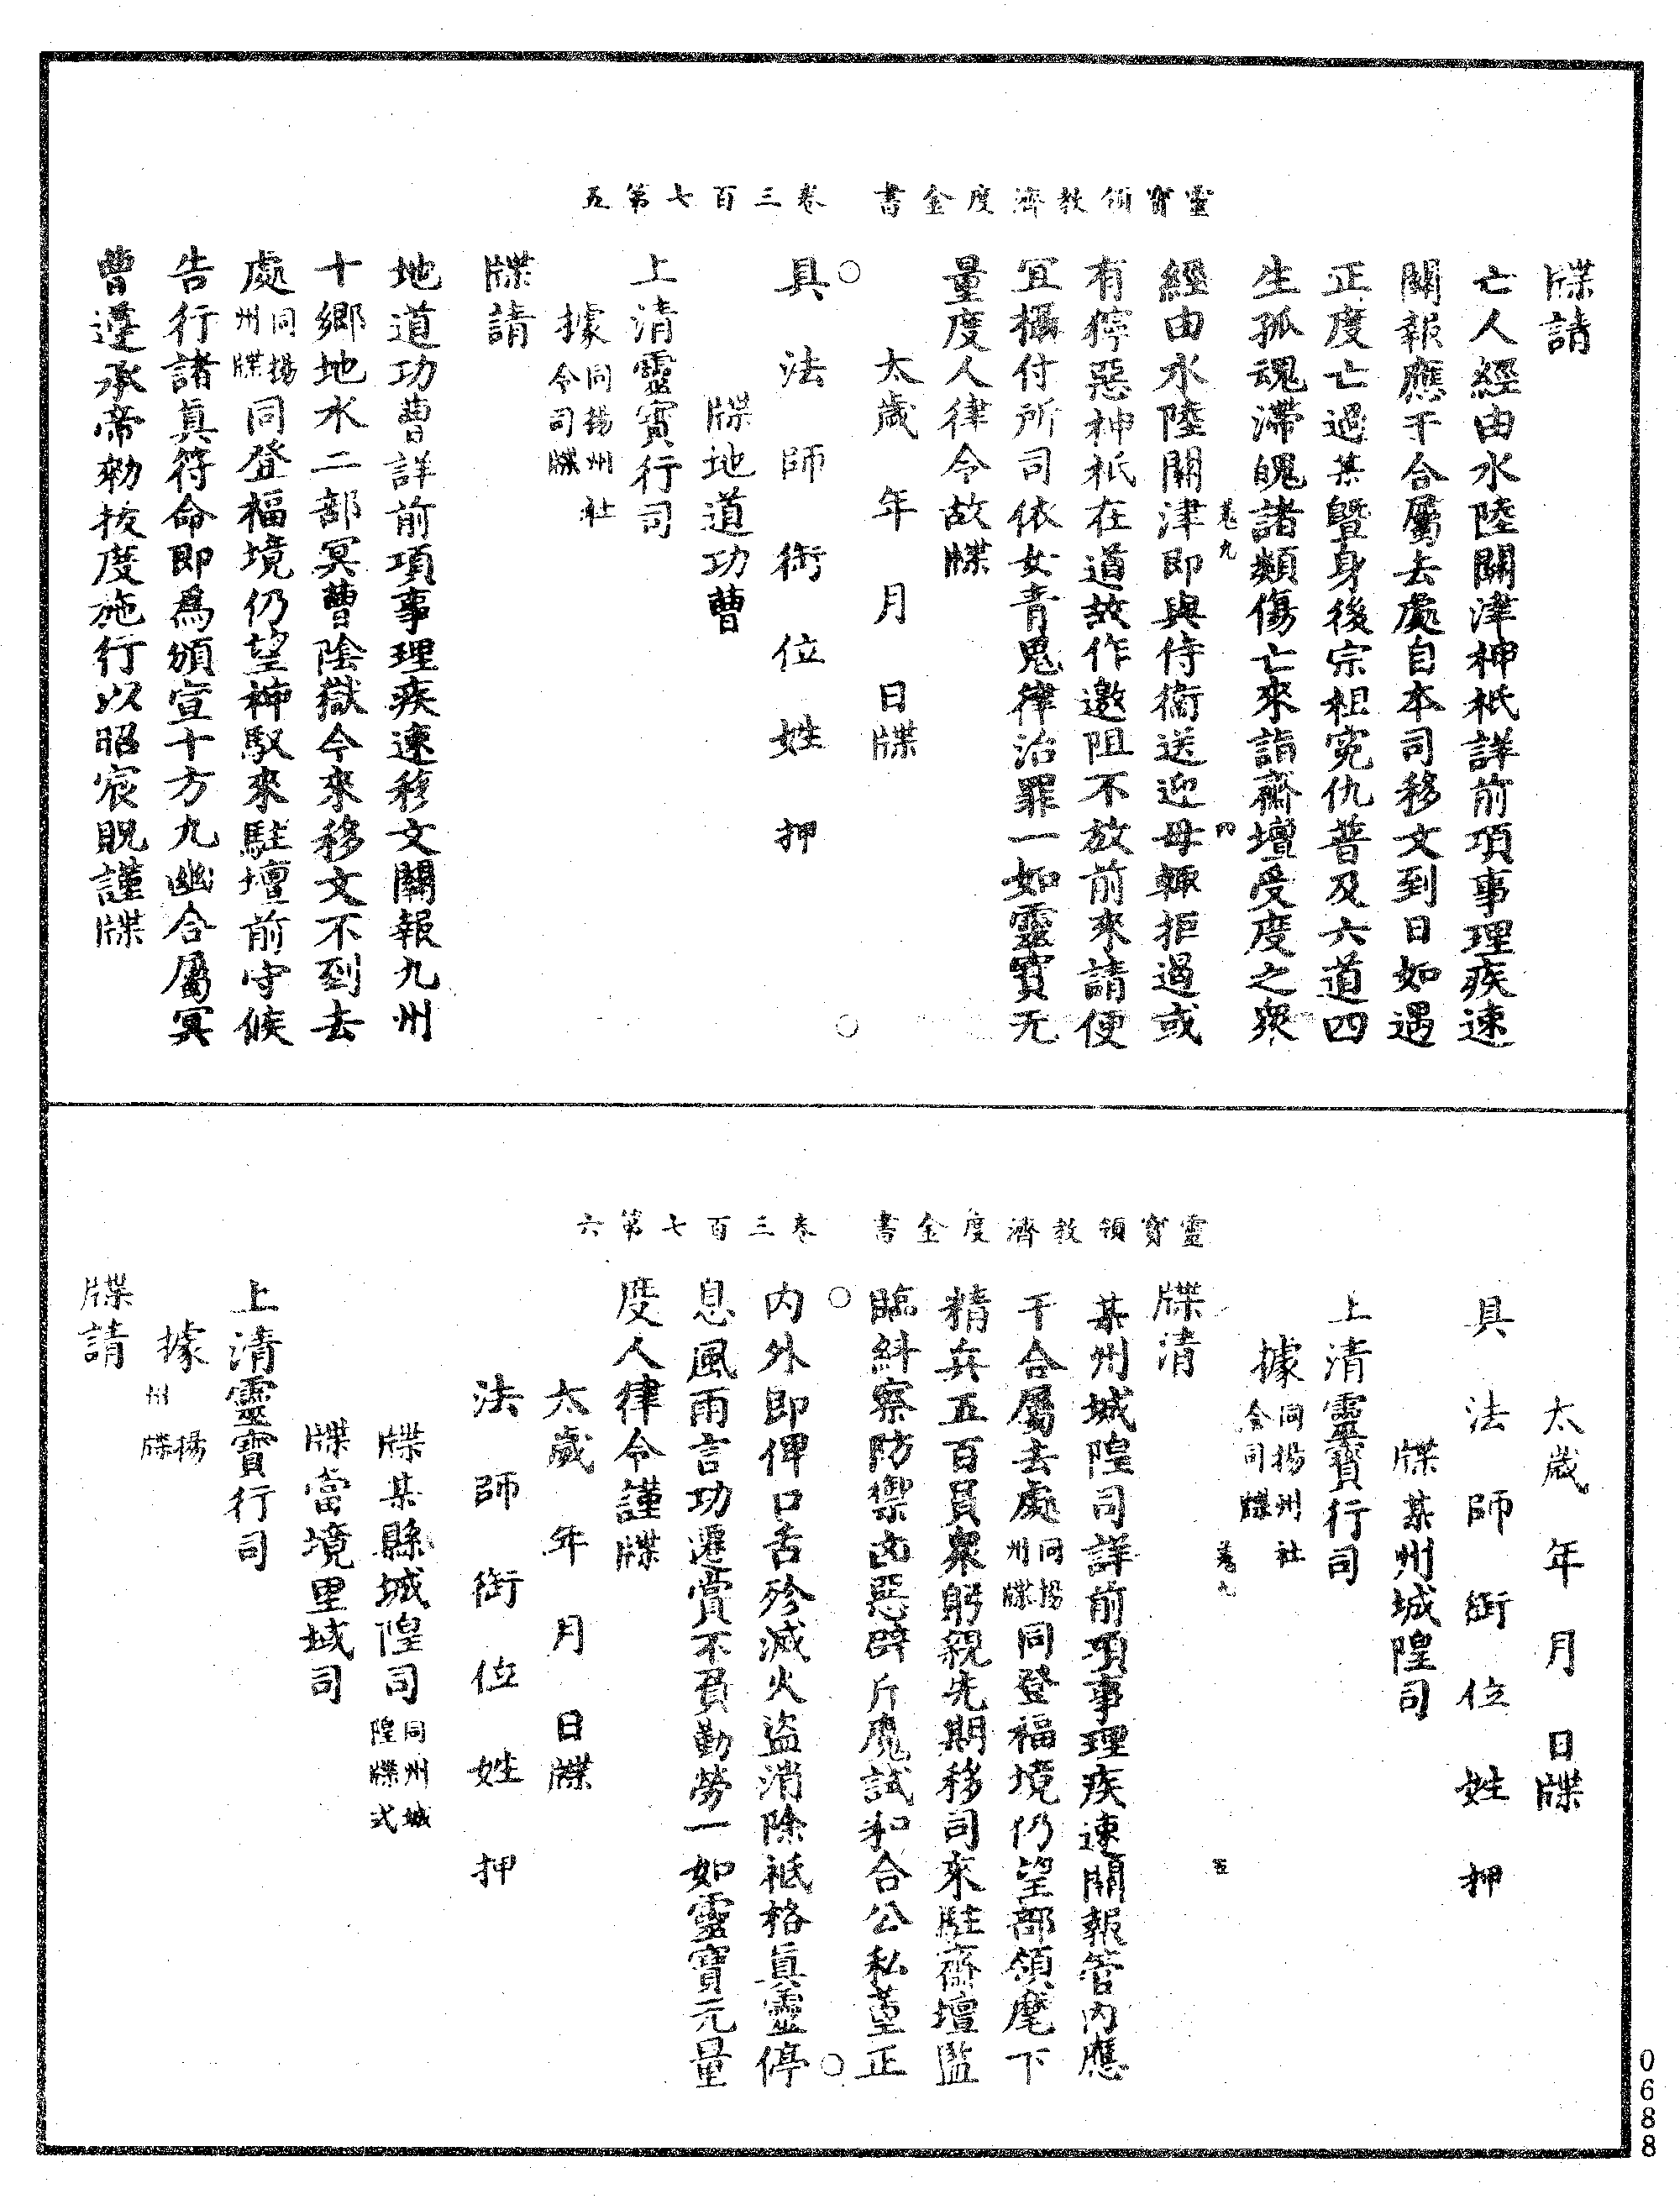 靈寶領教濟度金書　卷三百七第五
牒請
亡人經由水陸關津神祇詳前項事理疾速
關報應干合屬去處自本司移文到日如遇
正度亡過某暨身後宗祖寃仇普及六道四
生孤魂滯魄諸類傷亡來詣齋壇受度之衆
經由水陸關津即與侍衞送迎毋輙拒遏或
有獰惡神祇在道故作邀阻不放前來請便
冝攝付所司依女青鬼律治罪一如靈寶无
量度人律令故牒
太歲　年　月　日牒
具　法　師　銜　位　姓　押
牒地道功曹
上清靈寶行司
據同揚州社令司牒
牒請
地道功曹詳前項事理疾速移文關報九州
十鄉地水二部冥曹陰獄今來移文不到去
處同揚州牒同登福境仍望神馭來駐壇前守候
告行諸眞符命即爲頒宣十方九幽合屬冥
曹遵承帝勑拔度施行以昭宸貺謹牒
靈寶領教濟度金書　卷三百七第六
太歲　年　月　日牒
具　法　師　銜　位　姓　押
牒某州城隍司
上清靈寶行司
據同揚州社令司牒
牒清
某州城隍司詳前項事理疾速關報管内應
干合屬去處同揚州牒同登福境仍望部領麾下
精兵五百員衆躬親先期移司來駐齋壇監
臨糾察防禦凶惡辟斥魔試和合公私董正
内外即俾口舌殄滅火盜消除祗格眞靈停
息風雨言功遷賞不負勤勞一如靈寶元量
度人律令謹牒
太歲　年　月　日牒
法　師　銜　位　姓　押
牒某縣城隍司同州城隍牒式
牒當境里域司
上清靈寶行司
據揚州牒
牒請
0688